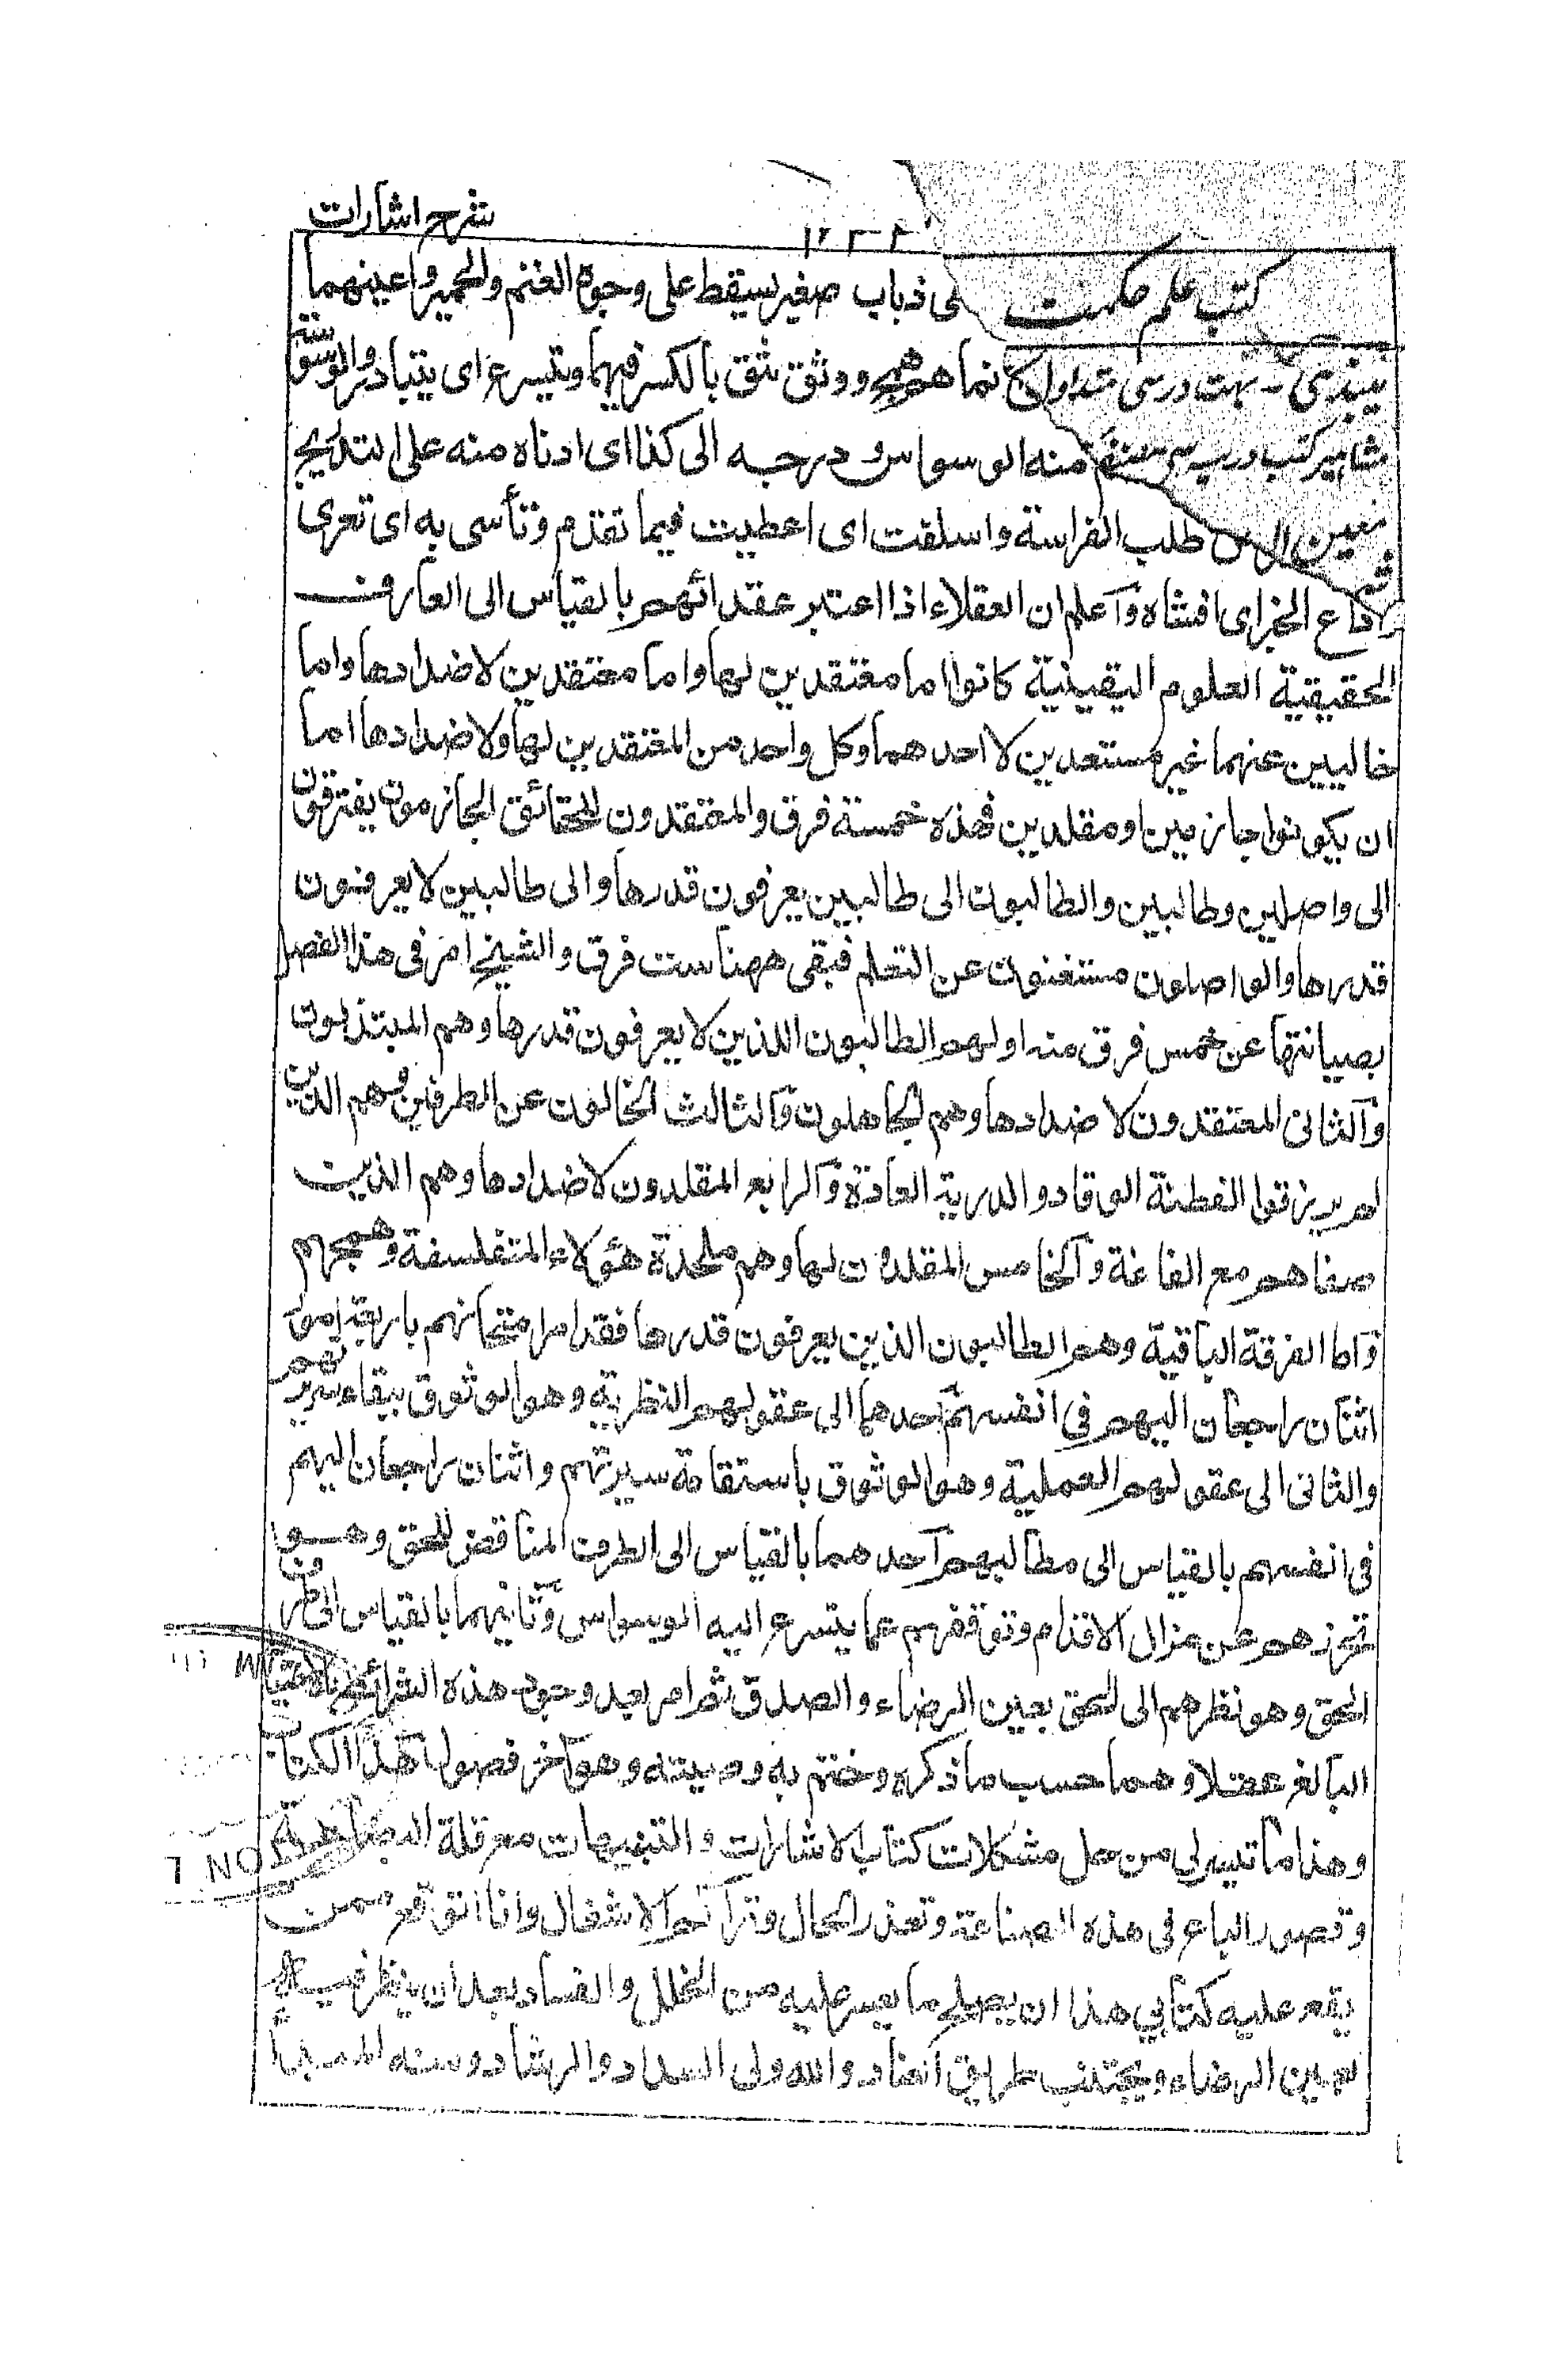 شرح اشارات
١٢٣٤
كتب علم حكمت لى ذباب صغير يسقط على وجوة الغنم والحمير واعينهما
ميبذى - بہت درسى متداول كانما هم همج ووثق يثق بالكسر فيهما ويتسرع اى يتبادر والوسوسة
مشاہير كتب درسيہ منه الوسواس ودرجه الى كذا اى ادناه منه على التدريج
طلب الفراسة واسلفت اى اعطيت فيما تقدم وتأسى به اى تعزى
اذاع الخبر اى افشاه وآعلم ان العقلاء اذا اعتبر عقدائهم بالقياس الى المعارف
الحقيقية العلوم اليقينية كانوا اما معتقدين لها واما معتقدين لاضدادها واما
خاليين عنهما غير مستعدين لاحدهما وكل واحد من المعتقدين لها ولاضدادها اما
ان يكونوا جازمين او مقلدين فهذه خمسة فرق والمعتقدون للحقائق الجازمون يفترقون
الى واصلين وطالبين والطالبون الى طالبين يعرفون قدرها والى طالبين لا يعرفون
قدرها والواصلون مستغنون عن التعلم فبقى ههنا ست فرق والشيخ امر فى هذا الفصل
بصيانتها عن خمس فرق منه اولهم الطالبون الذين لا يعرفون قدرها وهم المبتذلون
وآلثانى المعتقدون لاضدادها وهم الجاهلون وآلثالث الخالون عن الطرفين وهم الذين
لم يرزقوا الفطنة الوقادو الدربة العادة وآلرابع المقلدون لاضدادها وهم الذين
صفاهم مع الغاغة وآلخامس المقلدون لها وهم ملحدة هؤلاء المتفلسفة وهمجهم
وآما الفرقة الباقية وهم الطالبون الذين يعرفون قدرها فقد امر امتحانهم باربعة امور
اثنان راجعان اليهم فى انفسهم آحدهما الى عقولهم النظرية وهو الوثوق بنقاء سريرتهم
والثانى الى عقولهم العملية وهو الوثوق باستقامة سيرتهم واثنان راجعان اليهم
فى انفسهم بالقياس الى مطالبهم آحدهما بالقياس الى الطرف المناقض للحق وهو
تحرزهم عن مزال الاقدام وتوقفهم عما يتسرع اليه الوسواس وثانيهما بالقياس الى طرف
الحق وهو نظرهم الى الحق بعين الرضاء والصدق ثم امر بعد وجود هذه الشرائط بالاحتياط
البالغ عقلا وهما حسب ما ذكره وختم به وصيته وهو آخر فصول هذا الكتاب
وهذا ما تيسر لى من حل مشكلات كتاب الاشارات والتنبيهات مع قلة البضاعة
وقصور الباع فى هذه الصناعة وتعذر الحال وتراكم الاشغال وانا اتوقع ممن
يقع عليه كتابي هذا ان يصلح ما يعثر عليه من الخلل والفساد بعد ان ينظر فيه
بعين الرضاء ويجتنب طريق العناد والله ولى السداد والرشاد ومنه المبدأ